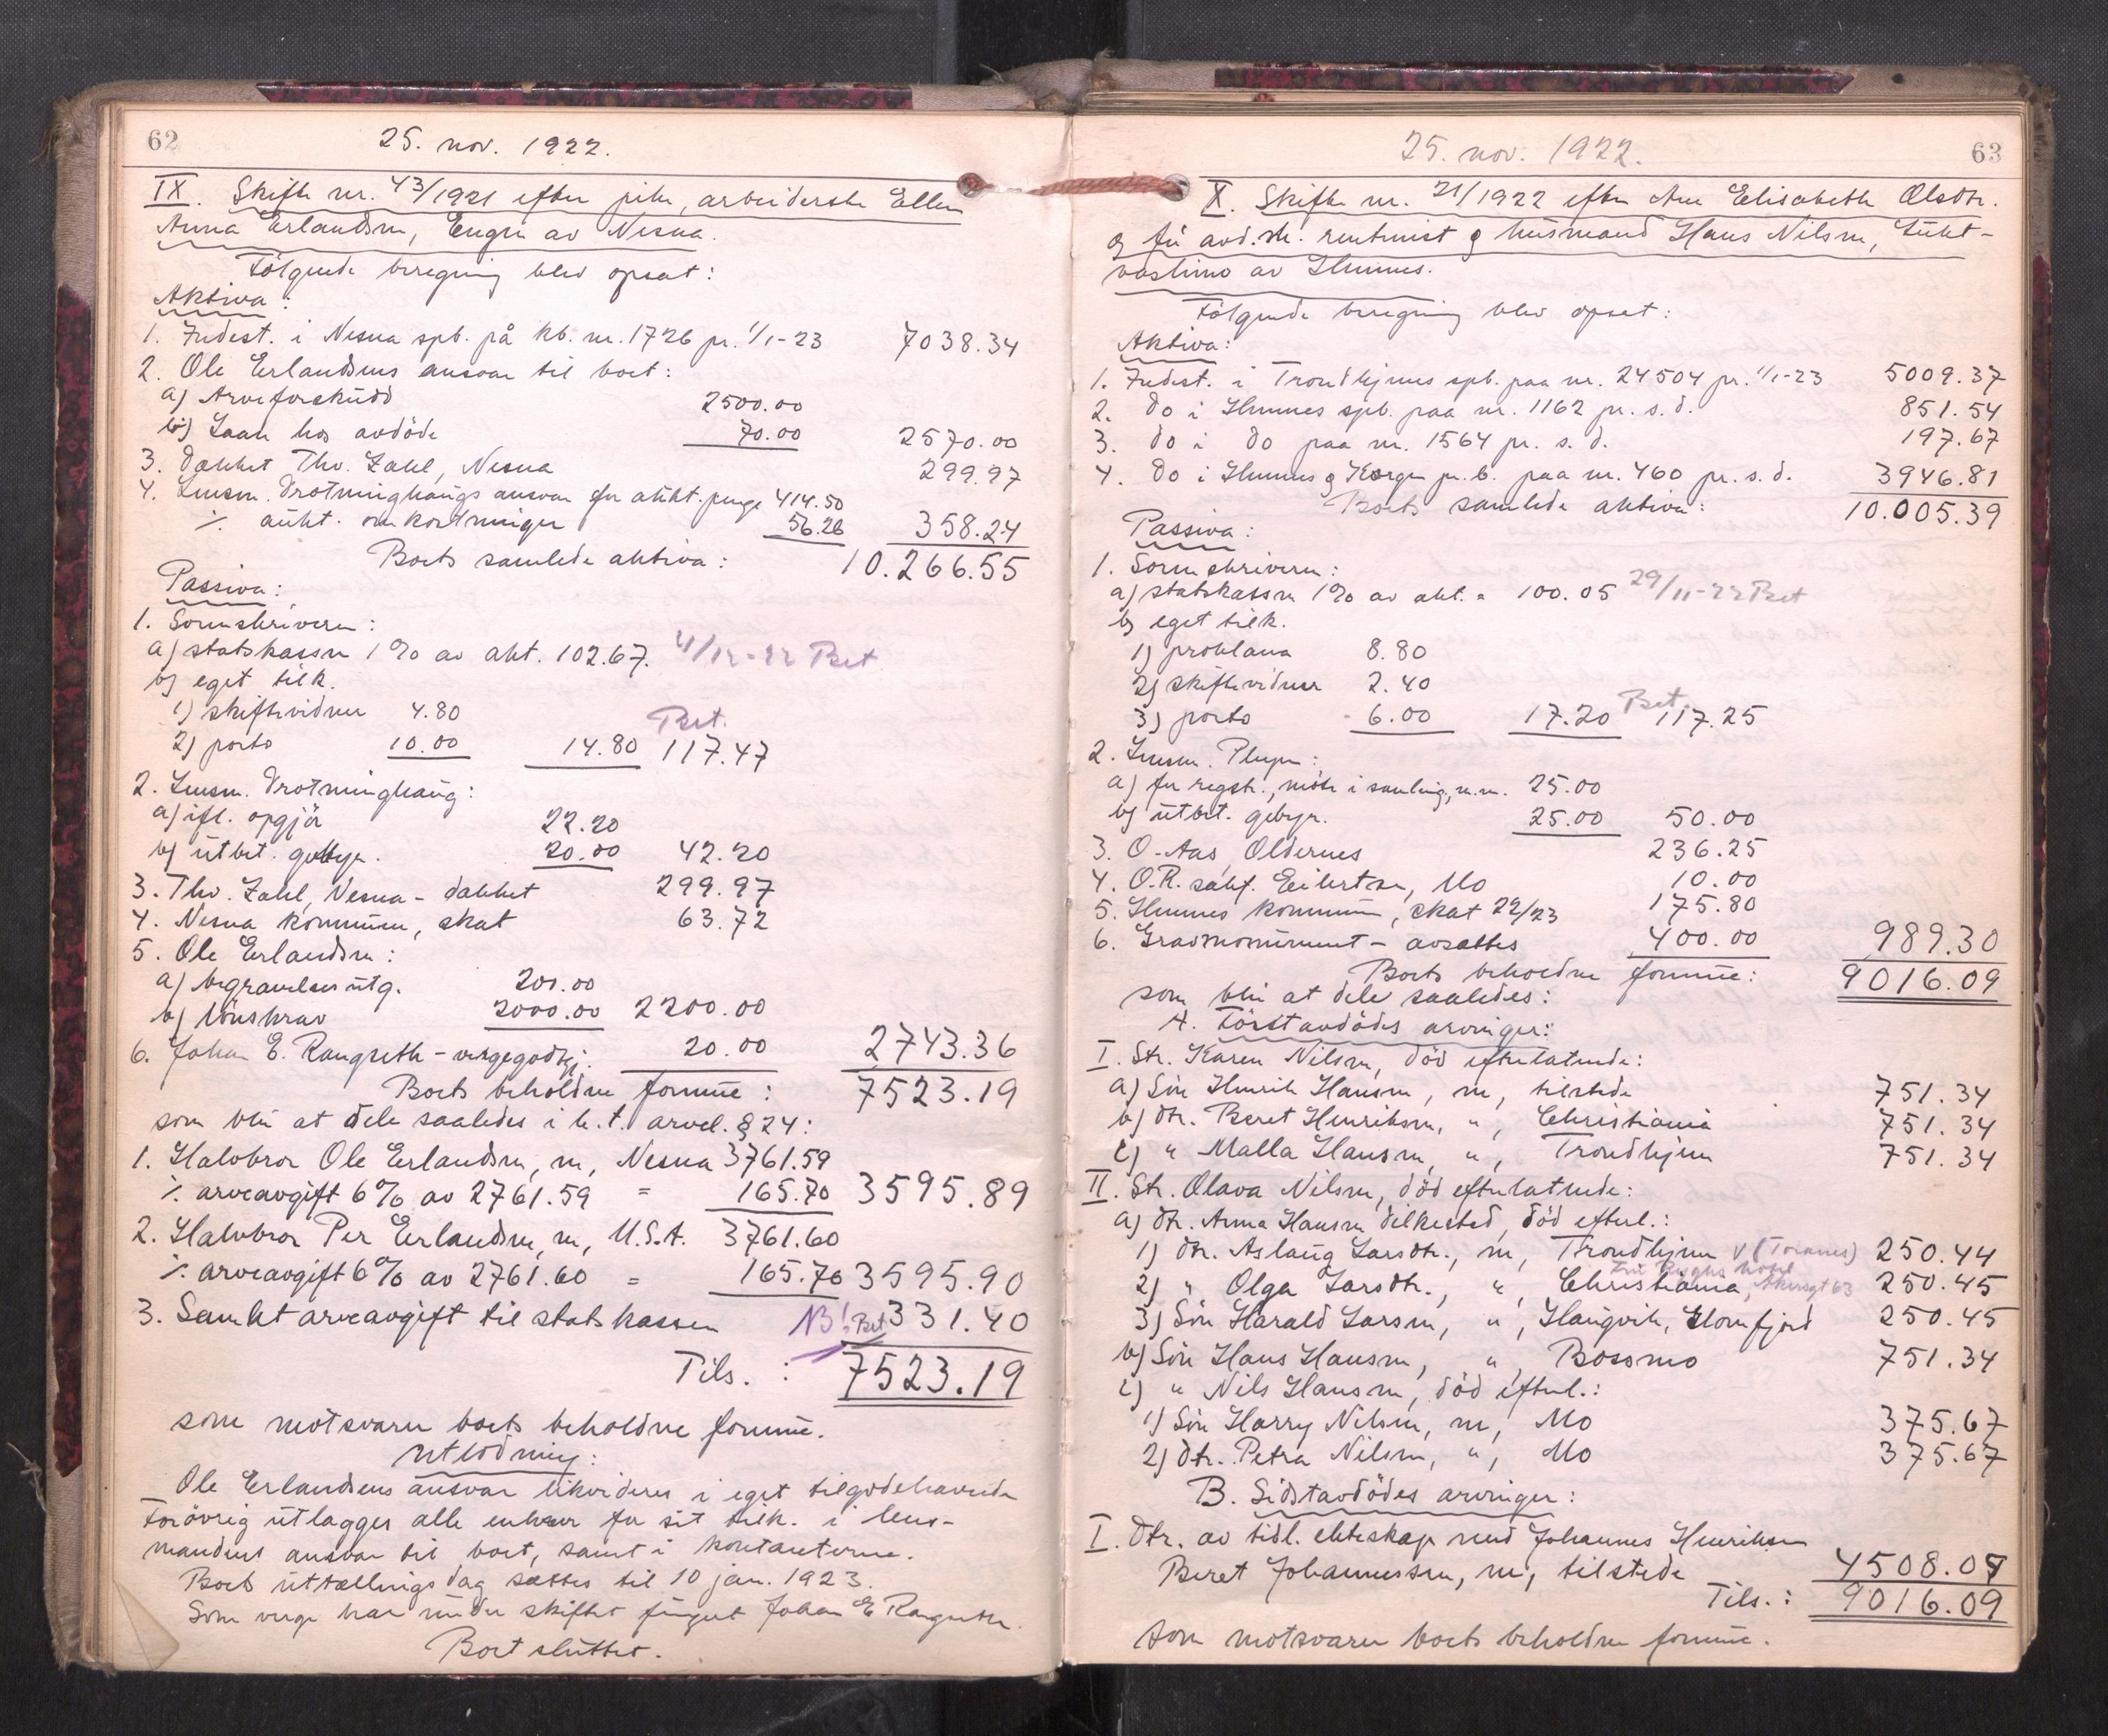 62
25. nov. 1922.
IX. Skifte nr. 43/1921 efter pike, arbeiderske Ellen
Anna Erlandsen, Engen av Nesna.
Følgende beregning blev opsat:
Aktiva:
1. Indest. i Nesna spb. på kb. nr. 1726 pr. 1/1-23 7038.34
2. Ole Erlandsens ansvar til boet:
a) Arveforskudd 2500.00
b) Laan hos avdøde 70.00 2570.00
3. Dækket Thv. Zahl, Nesna 299.97
4. Lensm. Drotninghaugs ansvar for aukt. penge 414.50
÷ aukt. omkostninger 56.26 358.24
Boets samlede aktiva: 10.266.55
Passiva:
1. Sorenskriveren:
a) statskassen 1% av akt. 102.67. 4/12-22 Bet
b) eget tilk.
1) skiftevidner 4.80 Bet.
2) porto 10.00 14.80 117.47
2. Lensm. Drotninghaug:
a) ifl. opgjør 22.20
b) utbet. gebyr. 20.00 42.20
3. Thv. Zahl, Nesna - dækket 299.97
4. Nesna kommune, skat 63.72
5. Ole Erlandsen:
a) begravelsesutg. 200.00
b) lønskrav 2000.00 2200.00
6. Johan E. Rangseth - vergegodtgj. 20.00 2743.36
Boets beholdne formue: 7523.19
som blir at dele saaledes i h. t. arvel. § 24:
1. Halvbror Ole Erlandsen, m, Nesna 3761.59
÷ arveavgift 6% av 2761.59 = 165.70 3595.89
2. Halvbror Per Erlandsen, m, U.S.A. 3761.60
÷ arveavgift 6% av 2761.60 = 165.70 3595.90
3. Samlet arveavgift til statskassen NB! Bet 331.40
Tils.: 7523.19
som motsvarer boets beholdne formue.
Utlodning:
Ole Erlandsens ansvar likvideres i eget tilgodehavende
Forøvrig utlægges alle enhver for sit tilk. i lens-
mandens ansvar til boet, samt i kontanterne.
Boets uttællingsdag sættes til 10 jan. 1923.
Som verge har under skiftet fungert Johan E Rangseth.
Boet sluttet.
63
25. nov. 1922.
X. Skifte nr. 21/1922 efter Ane Elisabeth Olsdtr.
og før avd. m. rentenist g husmand Hans Nilsen,
av Hemnes.
Følgende beregning blev opsat:
Aktiva:
1. Indest. i Trondhjems spb. paa nr. 24504 pr. 1/1-23 5009.37
2. do i Hemnes spb. paa nr. 1162 pr. s. d. 851.54
3. do i do paa nr. 1564 pr. s. d. 197.67
4. do i Hemnes g Korgen pr. b. paa nr. 460 pr. s. d. 3946.81
Boets samlede aktiva: 10.005.39
Passiva:
1. Sorenskriveren:
a) statskassen 1% av akt. = 100.05 29/11-22 Bet
b) eget tilk.
1) proklama 8.80
2) skiftevidner 2.40
3) porto 6.00 17.20 Bet. 117.25
2. Lensm. :
a) for registr., møte i samling, m.m. 25.00
b) utbet. gebyr. 25.00 50.00
3. O. Aas, Oldernes 236.25
4. O.R. sakf. Eilertsen, Mo 10.00
5. Hemnes kommune, skat 22/23 175.80
6. Gravmonument - avsættes 400.00 989.30
Boets beholdne formue: 9016.09
som blir at dele saaledes:
A. Førstavdødes arvinger:
I. Str. Karen Nilsen, død efterlatende:
a) Søn Henrik Hansen, m, tilstede 751.34
b) dtr. Beret Henriksen, " , Christiania 751.34
c) " Malla Hansen, " , Trondhjem 751.34
II. Str. Olava Nilsen, død efterlatende:
a) dtr. Anna Hansen Dilkested, død efterl.:
1) dtr. Aslaug Larsdtr., m, Trondhjem 250.44
2) " Olga Larsdtr., " , Christiania, Akersgt 63 250.45
3) Søn Harald Larsen, " , Haugvik, Glomfjord 250.45
b) Søn Hans Hansen, " , Bossmo 751.34
c) " Nils Hansen, død efterl.:
1) Søn Harry Nilsen, m, Mo 375.67
2) dtr. Petra Nilsen, " , Mo 375.67
B. Sidstavdødes arvinger:
I. Dtr. av tidl. ekteskap med Johannes Henriksen
Beret Johannessen, m, tilstede 4508.05
Tils.: 9016.09
som motsvarer boets beholdne formue.